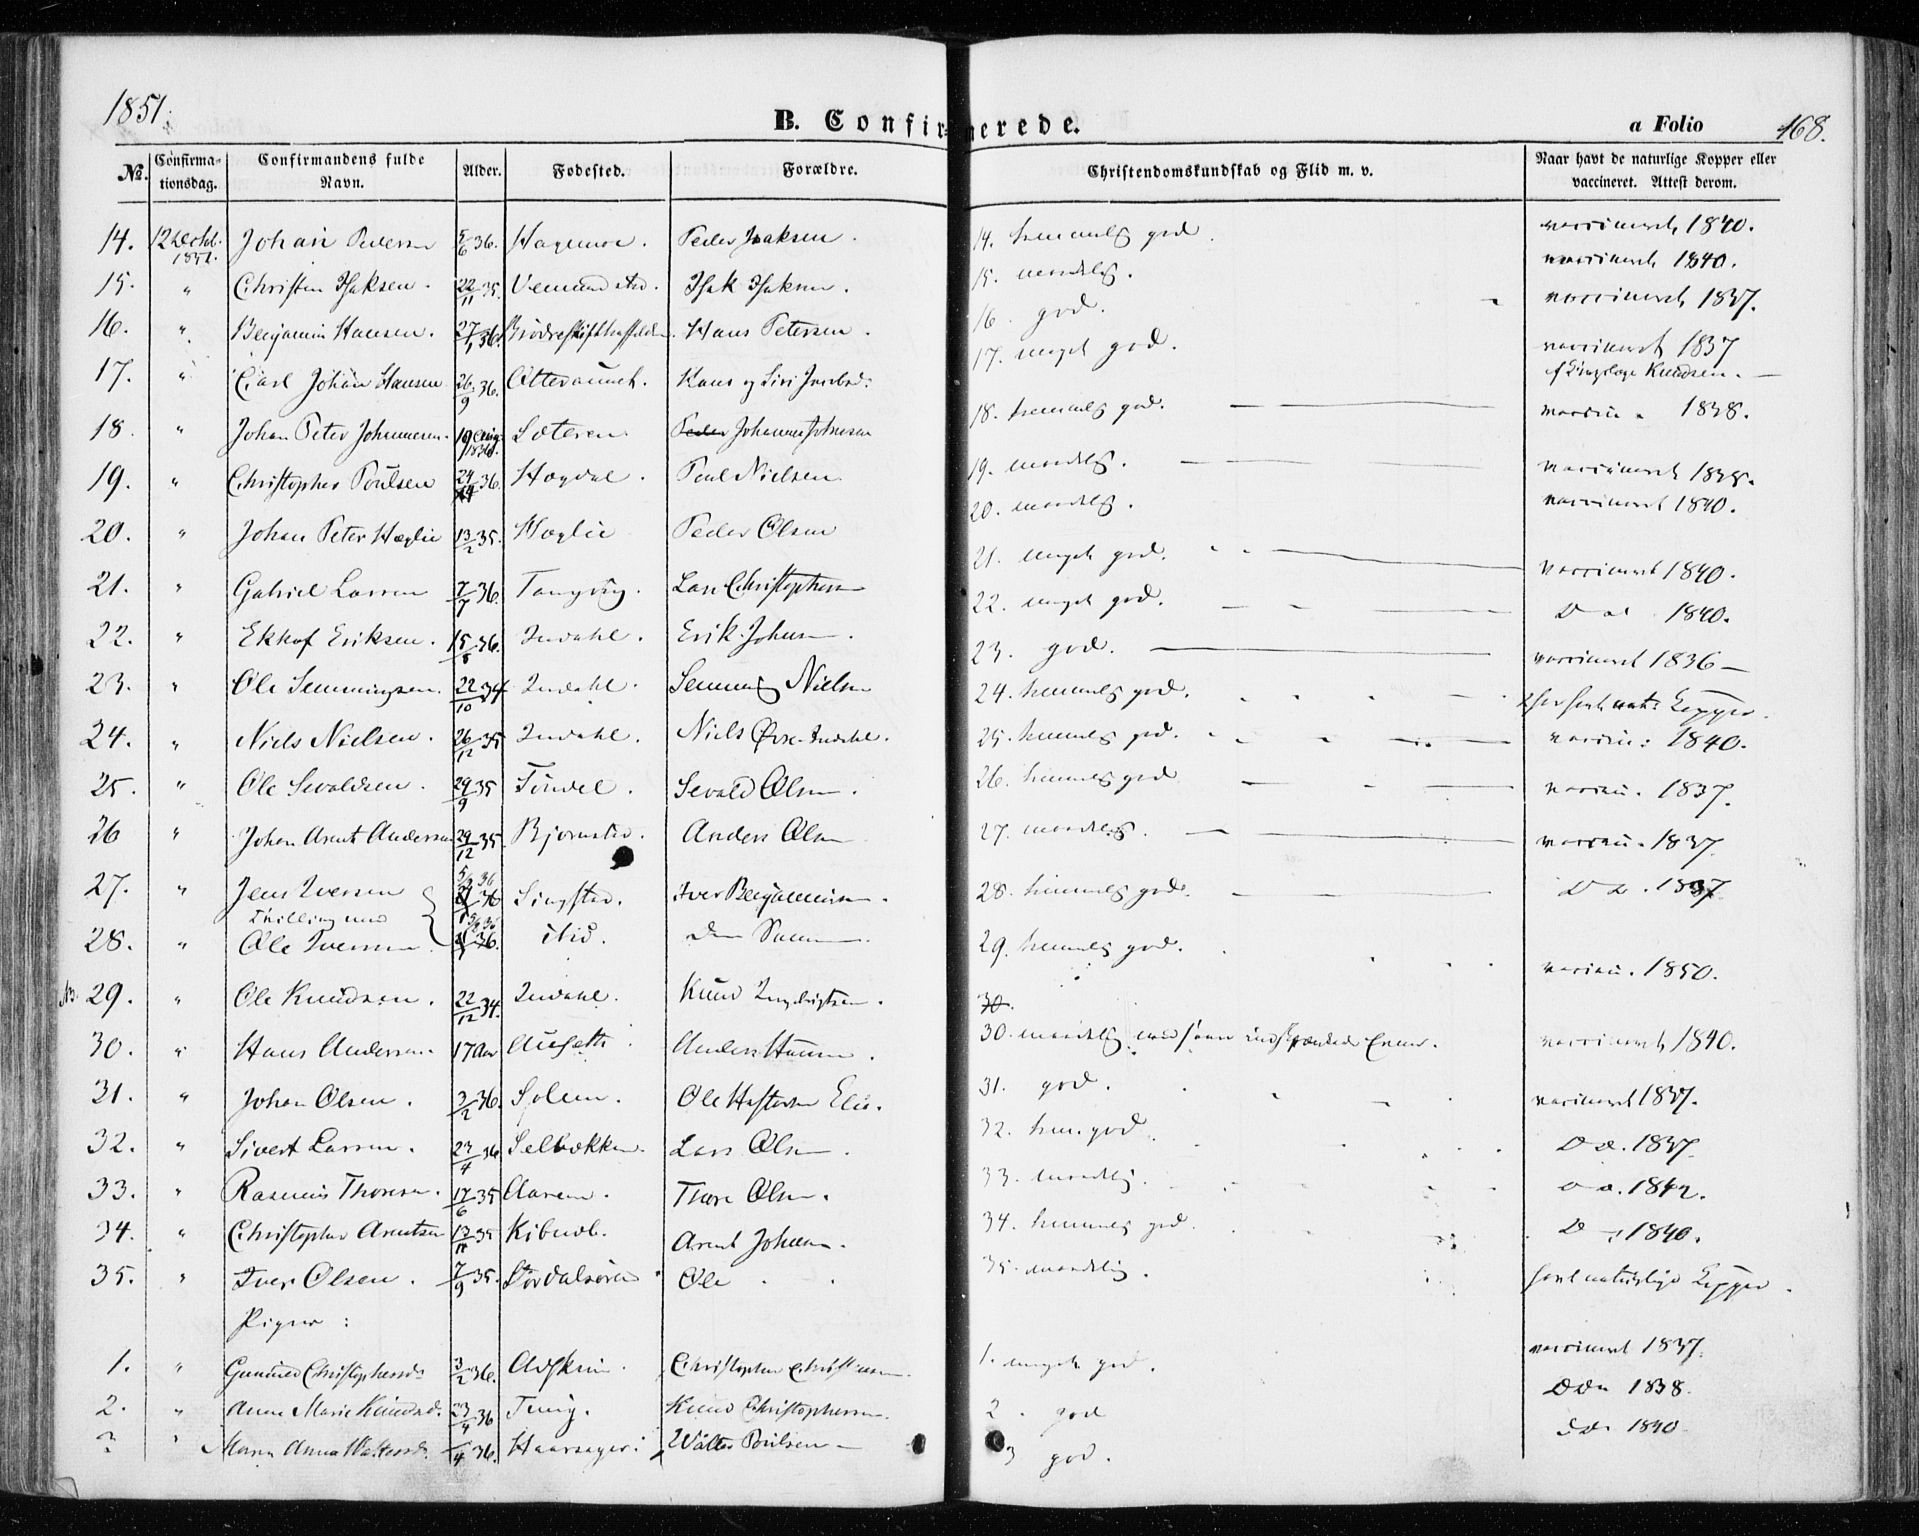 1851.
B. Confirmerede.
a Folio 168.
No. Confirmationsdag. Confirmandens fulde Navn. Alder. Fødested. Forældre. Christendomskundskab og Flid m. v. Naar havt de naturlige Kopper eller vaccineret. Attest derom.
14. 12 Octob. 1851. Johan Pedersen 5/6 36. Hagemoe. Peder Isaksen. 14. temmelig god. vaccineret 1840.
15. " Christen Isaksen. 22/11 35. Vemundstad. Isak Isaksen. 15. maadelig. vaccineret 1840.
16. " Benjamin Hansen. 27/1 36. Hans Petersen. 16. god. vaccineret 1837.
17. " Carl Johan Hansen 26/9 36. Hans og Siri 17. meget god. vaccineret 1837 Knudsen.
18. " Johan Peter Johannesen. 19 Aug 1836. Sæteren. Peder Johannes Johnsen 18. temmelig god. 1838.
19. " Christopher Poulsen 24 36. Høgdal. Poul Nielsen 19. maadelig. vaccineret 1838.
20. " Johan Peter Høglie 13/2 35. Høglie Peder Olsen 20. maadelig. vaccineret 1840.
21. " Gabriel Larsen 7/7 36. Tangvig. Lars Christophersen 21. meget god. vaccineret 1840.
22. " Ekhof Eriksen. 15/5 36. Indahl. Erik Johnsen. 22. meget god. Do 1840.
23. " Ole Semmingsen. 22/10 34 Indahl. Semming Nielsen 23. god. vaccineret 1836
24. " Niels Nielsen. 26/12 35 Indahl. Niels Øvre Indahl. 24. temmelig god. har havt nat: Kopper.
25. " Ole Sevaldsen. 29/9 35 Tondel. Sevald Olsen. 25. temmelig god. vaccin: 1840.
26 " Johan Arent Andersen 29/12 35. Bjørnstad. Anders Olsen 26. temmelig god vaccin. 1837.
27. " Jens Iversen 5/3 36 Singstad. Iver Benjaminsen. 27. maadelig. vaccin. 1837
Tvilling med
28. " Ole Iversen 36. ibid. Den Samme. 28. temmelig god. Do. 1837
NB. 29. " Ole Knudsen. 22/12 34. Indahl. Knud Ingebrigtsen. 29. temmelig god. vaccin. 1850.
30.
30. " Hans Andersen. 17 Aar Anders Hansen. 30. maadelig med indskrænkede Evner. vaccineret 1840.
31. " Johan Olsen. 3/2 36. Solem. Ole 31. god. vaccineret 1837.
32. " Sivert Larsen. 23/4 36 Selbækken. Lars Olsen. 32. tem. god. Do. 1837.
33. " Rasmus Thoresen. 17/6 35 Aarem. Thore Olsen. 33. maadelig. Do. 1842.
34. " Christopher Arentsen 13/11 35 Arent Johnsen. 34. temmelig god. Do 1840.
35. " Iver Olsen. 7/9 35. Størdalsøren Ole 35. maadelig. havt naturlige Kopper.
Piger:
1. " Gunnild Christophersd. 3/2 36. Christopher Christensen 1. meget god. vaccineret 1837.
2. " Anne Marie Knudsd. 23/4 36 Tung. Knud Christophersen. 2. god Do 1838.
3 " Maren Anna Waltersd. /4 36. Haarsager: Walter Poulsen 3 god. Do 1840